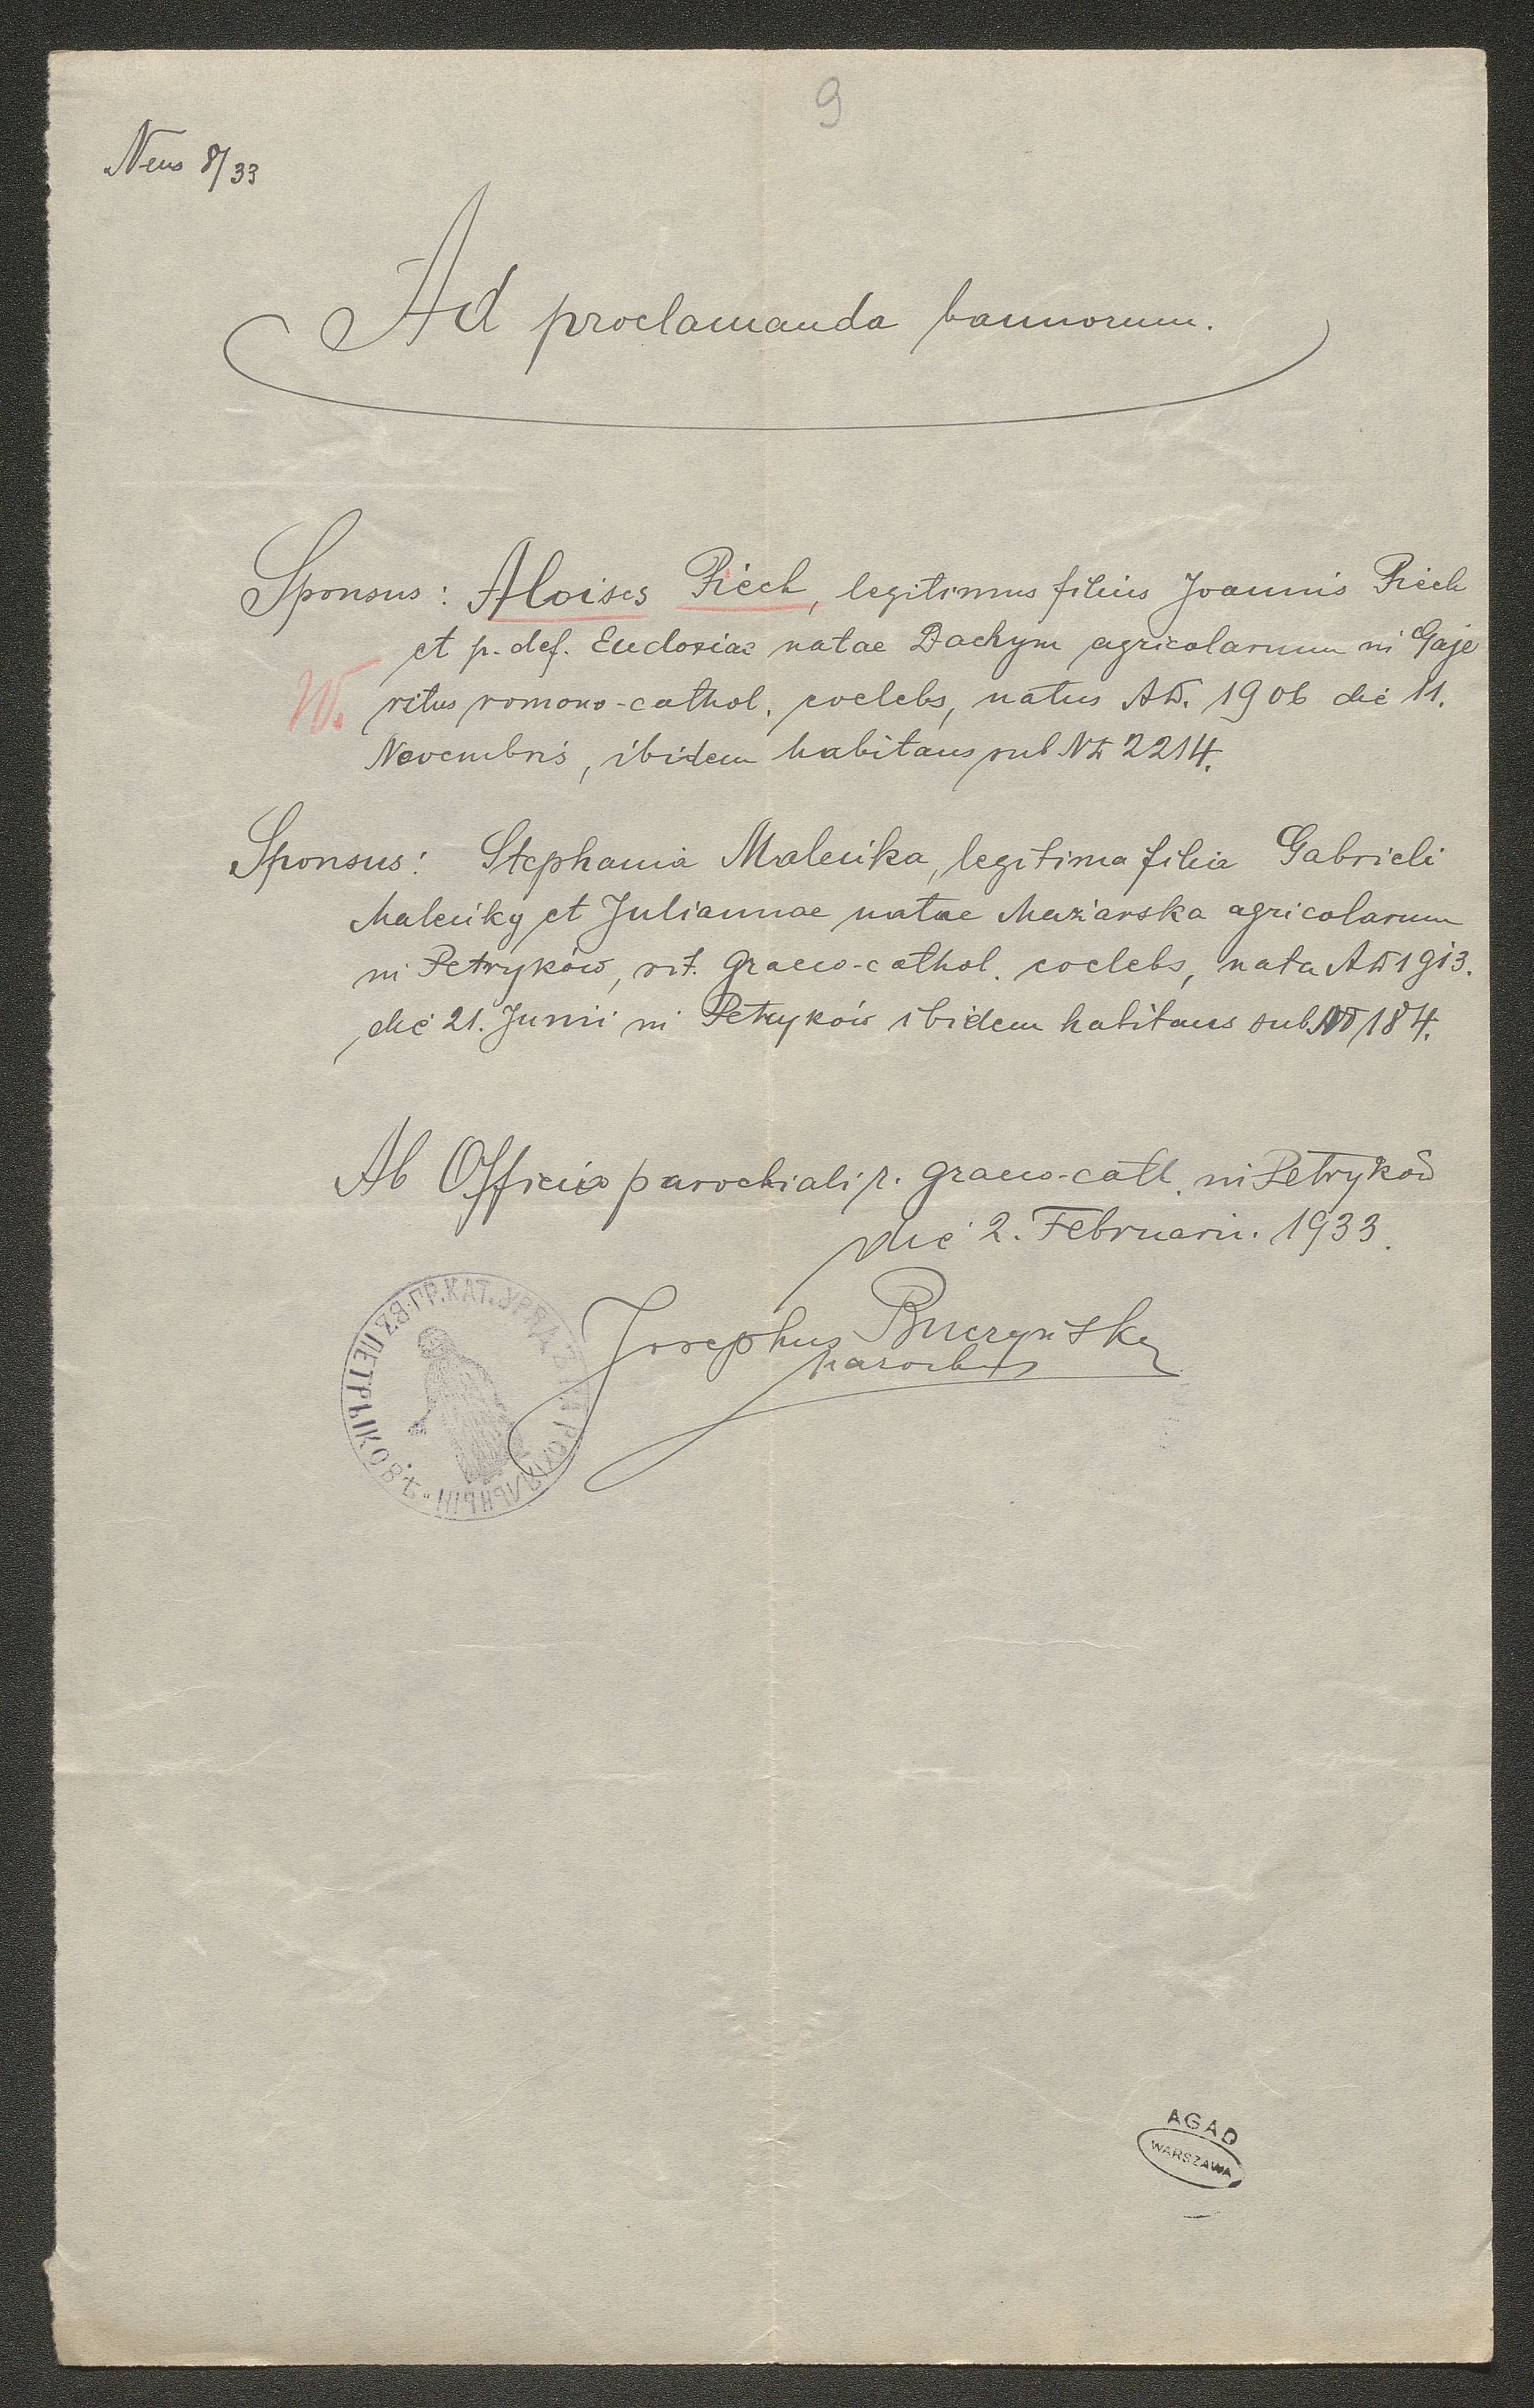 9
Nrus 8/33
Ad proclamanda bannorum.
Sponsus: Aloises Piech, legitimus filius Joannis Piech
et p. def. Eudoxiae natae Dachym agricolarum in Gaje
W. ritus romano-cathol. coelebs, natus AD. 1906 die 11.
Novembris, ibidem habitans sub No 2214.
Sponsus: Stephania Maleńka, legitima filia Gabrieli
Maleńky et Juliannae natae Maziarska agricolarum
in Petryków, rit. graeco-cathol. coelebs, nata AD 1913.
die 21. Junii in Petryków ibidem habitans sub No 184.
Ab Officio parochiali r. graeco-cath. in Petryków
die 2. Februarii. 1933.
Josephus Buczyński
parochus
ГР. КАТ. УРЯД ПАРОХІЯЛЬНЫЙ ПЕТРЫКОВѢ
AGAD
WARSZAWA